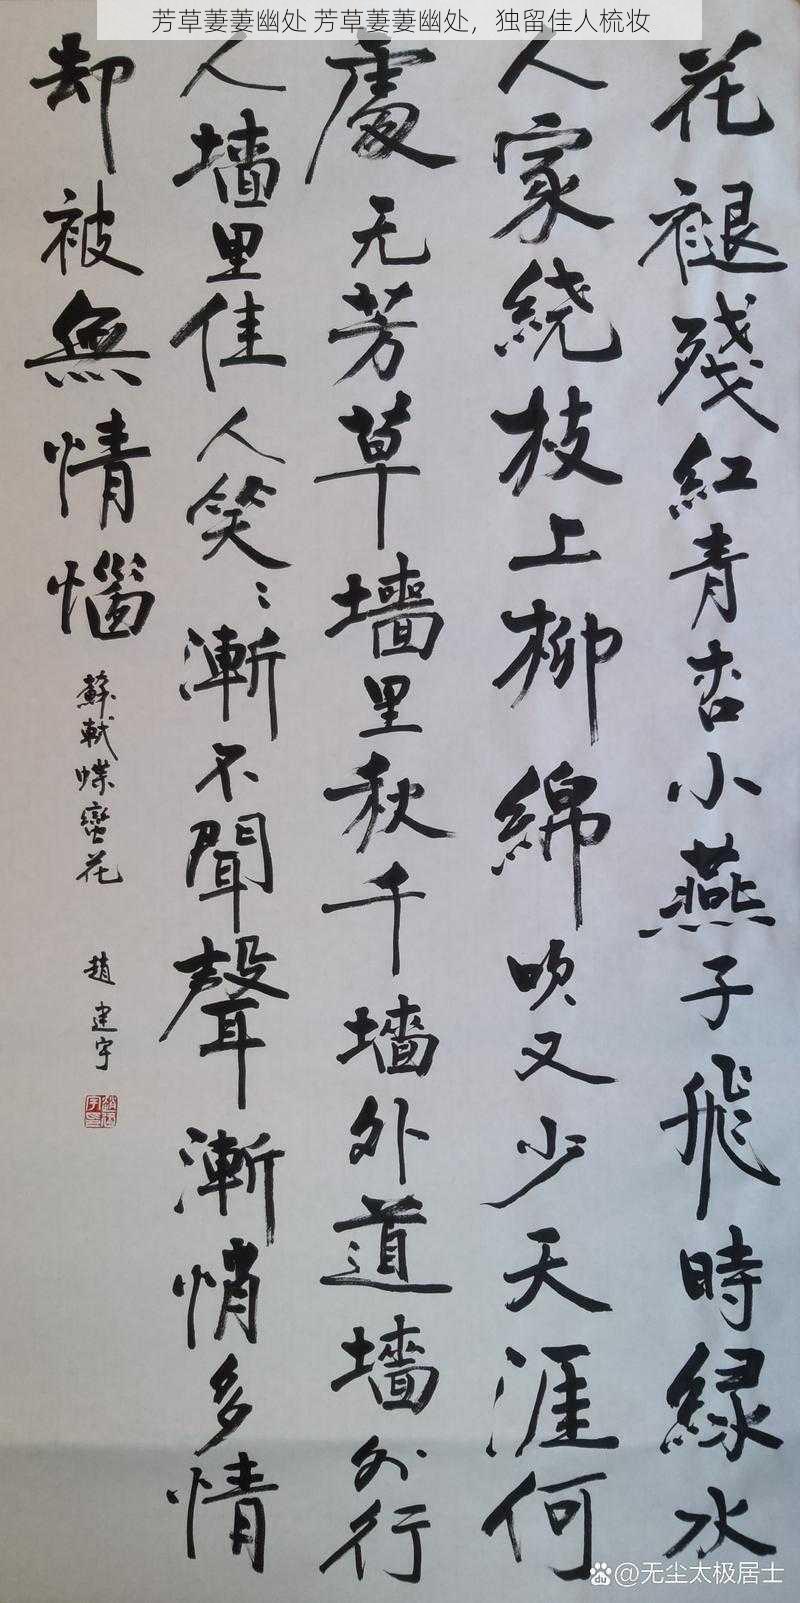 芳草萋萋幽处 芳草萋萋幽处，独留佳人梳妆
花褪殘紅青杏小燕子飛時緑水
人家繞枝上柳綿吹又少天涯何
處无芳草墙里秋千墙外道墙外行
人墙里佳人笑〻漸不聞聲漸悄多情
却被無情惱
蘇軾蝶戀花
趙建宇
@无尘太极居士